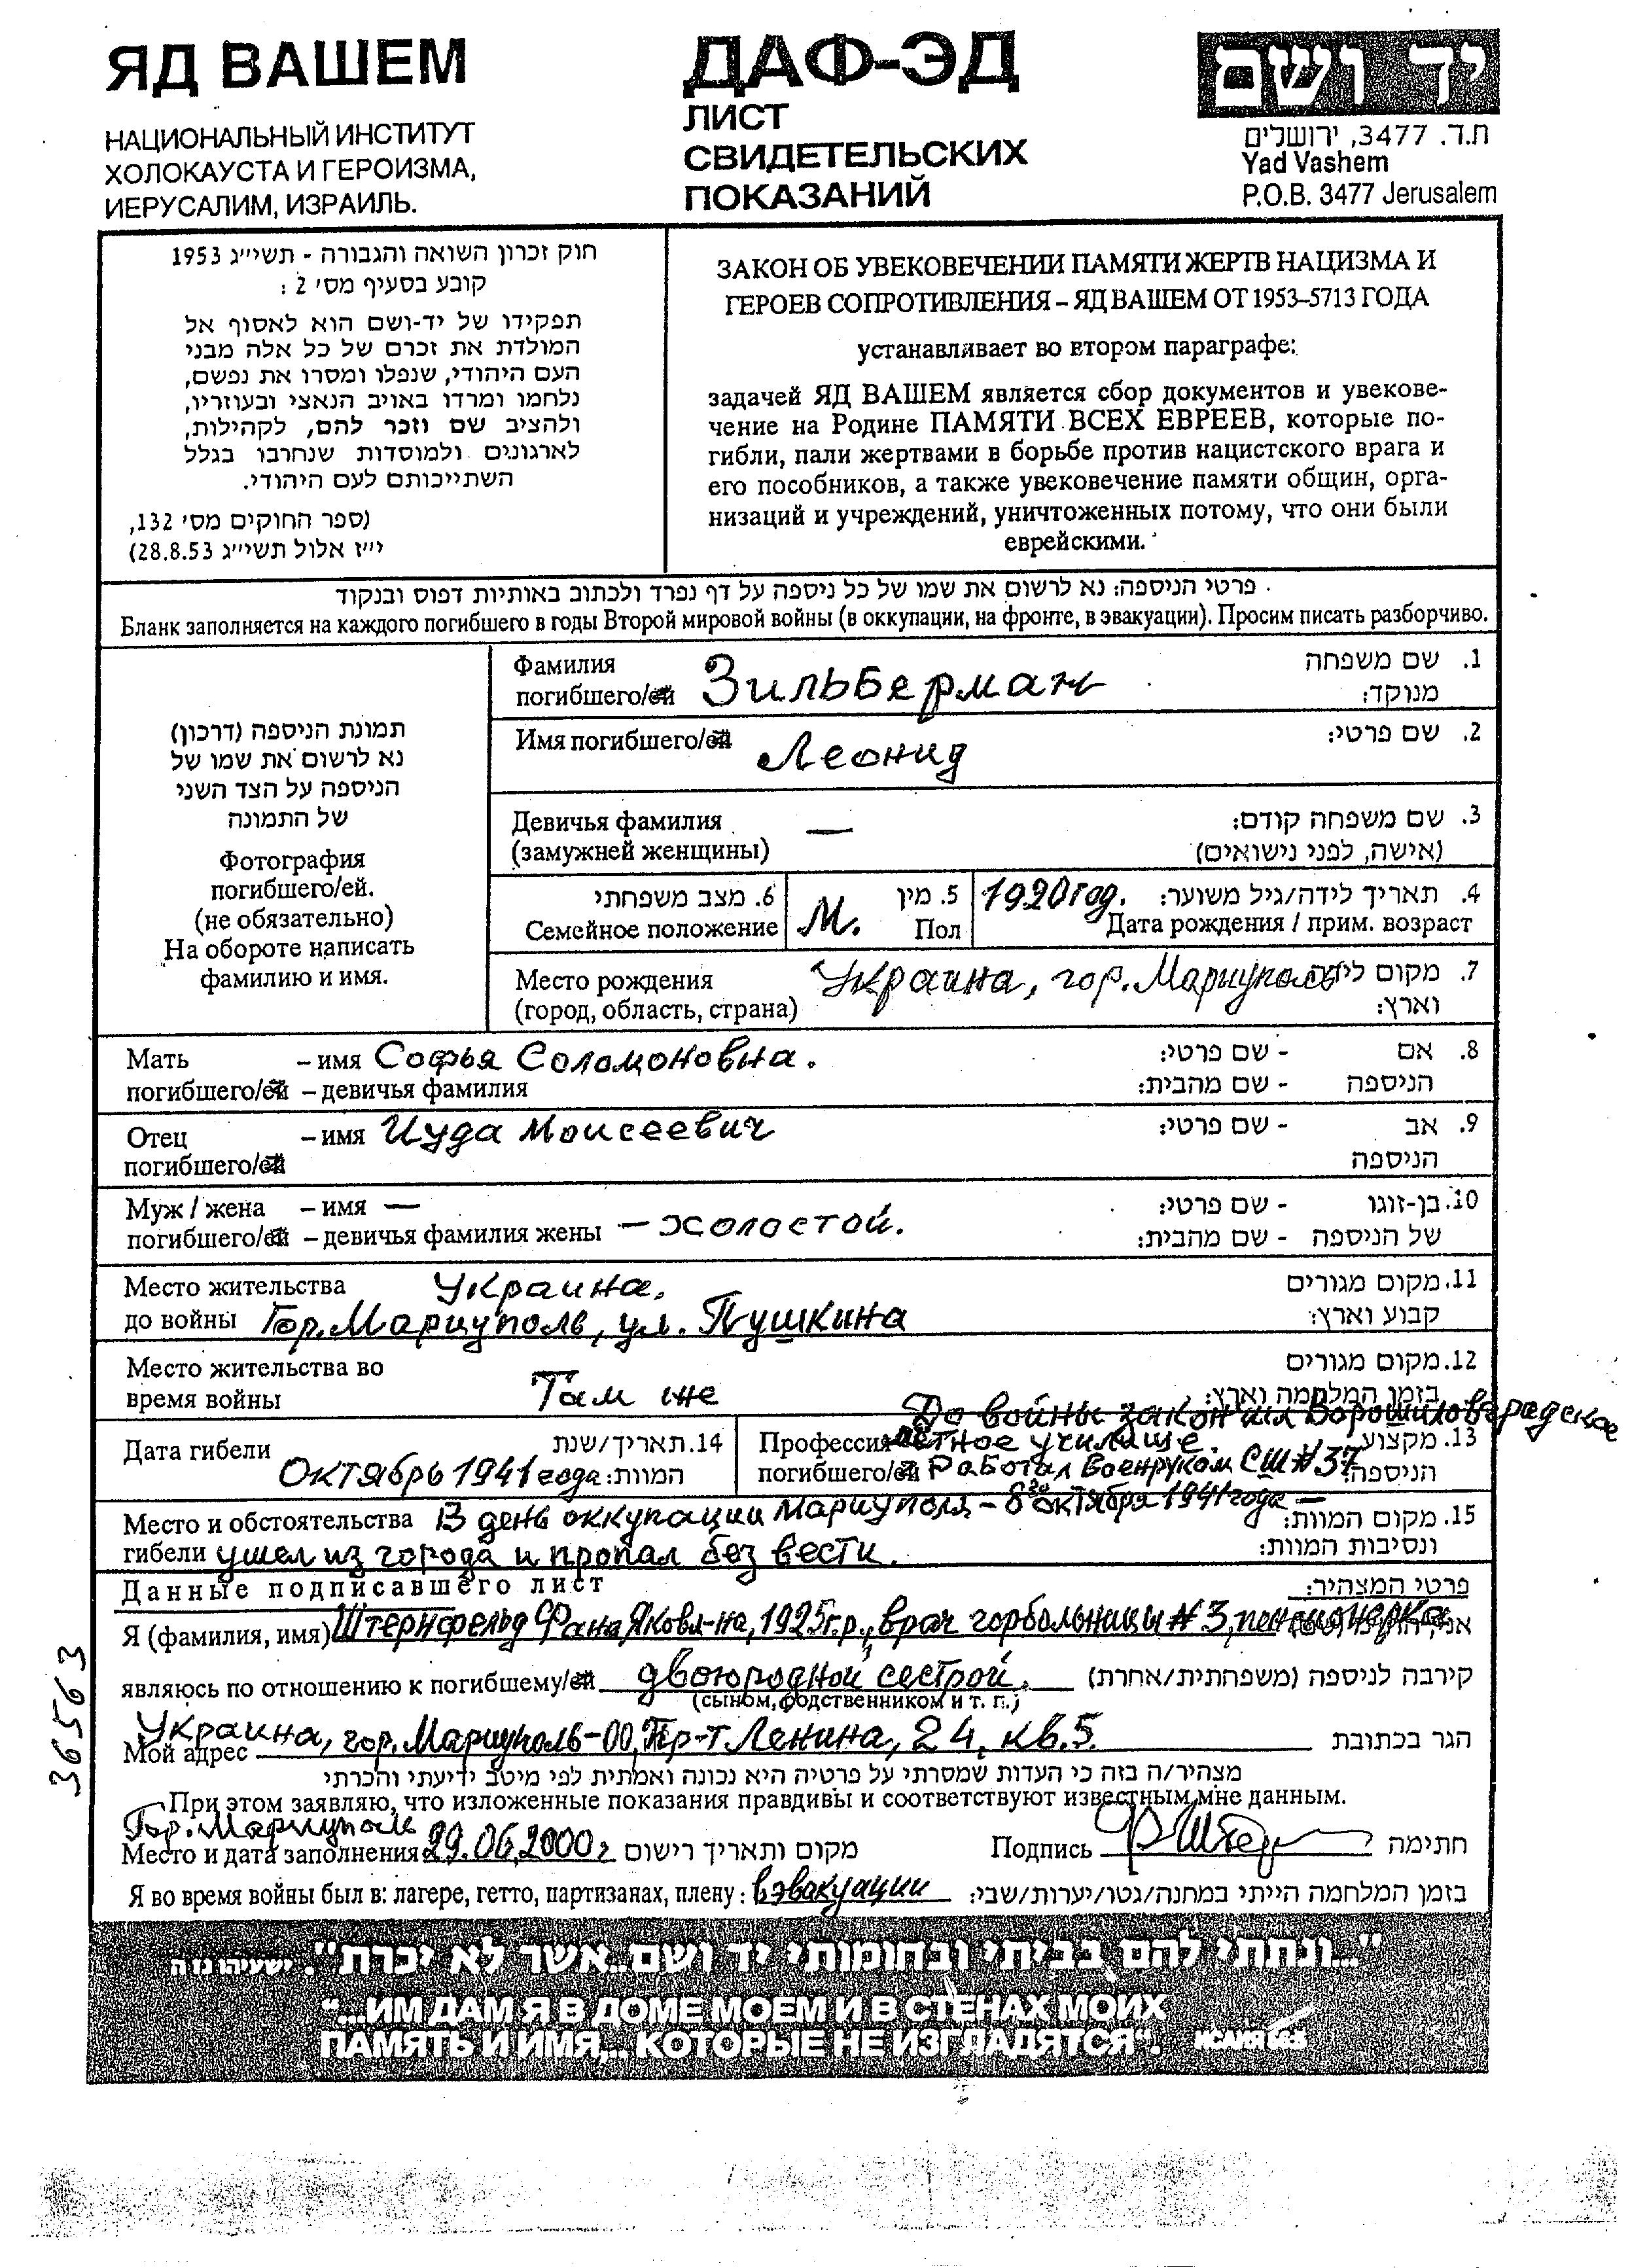 ЯД ВАШЕМ
НАЦИОНАЛЬНЫЙ ИНСТИТУТ
ХОЛОКАУСТА И ГЕРОИЗМА,
ИЕРУСАЛИМ, ИЗРАИЛЬ.
ДАФ-ЭД
ЛИСТ
СВИДЕТЕЛЬСКИХ
ПОКАЗАНИЙ
יד ושם
ת.ד. 3477, ירושלים
Yad Vashem
P.O.B. 3477 Jerusalem
חוק זכרון השואה והגבורה - תשי״ג 1953
קובע בסעיף מס׳ 2 :
תפקידו של יד-ושם הוא לאסוף אל
המולדת את זכרם של כל אלה מבני
העם היהודי, שנפלו ומסרו את נפשם,
נלחמו ומרדו באויב הנאצי ובעוזריו,
ולהציב שם וזכר להם, לקהילות,
לארגונים ולמוסדות שנחרבו בגלל
השתייכותם לעם היהודי.
(ספר החוקים מס׳ 132,
י״ז אלול תשי״ג 28.8.53)
ЗАКОН ОБ УВЕКОВЕЧЕНИИ ПАМЯТИ ЖЕРТВ НАЦИЗМА И
ГЕРОЕВ СОПРОТИВЛЕНИЯ – ЯД ВАШЕМ ОТ 1953–5713 ГОДА
устанавливает во втором параграфе:
задачей ЯД ВАШЕМ является сбор документов и увекове-
чение на Родине ПАМЯТИ ВСЕХ ЕВРЕЕВ, которые по-
гибли, пали жертвами в борьбе против нацистского врага и
его пособников, а также увековечение памяти общин, орга-
низаций и учреждений, уничтоженных потому, что они были
еврейскими.
פרטי הניספה: נא לרשום את שמו של כל ניספה על דף נפרד ולכתוב באותיות דפוס ובנקוד
Бланк заполняется на каждого погибшего в годы Второй мировой войны (в оккупации, на фронте, в эвакуации). Просим писать разборчиво.
תמונת הניספה (דרכון)
נא לרשום את שמו של
הניספה על הצד השני
של התמונה
Фотография
погибшего/ей.
(не обязательно)
На обороте написать
фамилию и имя.
Фамилия
погибшего/ей Зильберман
1. שם משפחה
מנוקד:
Имя погибшего/ей Леонид
2. שם פרטי:
Девичья фамилия —
(замужней женщины)
3. שם משפחה קודם:
(אישה, לפני נישואים)
6. מצב משפחתי
Семейное положение
М. 5. מין
Пол
1920 год. 4. תאריך לידה/גיל משוער:
Дата рождения / прим. возраст
Место рождения Украина, гор. Мариуполь
(город, область, страна)
7. מקום
וארץ:
Мать – имя Софья Соломоновна.
погибшего/ей – девичья фамилия
8. אם - שם פרטי:
הניספה - שם מהבית:
Отец – имя Иуда Моисеевич
погибшего/ей
9. אב - שם פרטי:
הניספה
Муж / жена – имя —
погибшего/ей – девичья фамилия жены – холостой.
10. בן-זוגו - שם פרטי:
של הניספה - שם מהבית:
Место жительства Украина.
до войны Гор. Мариуполь, ул. Пушкина
11. מקום מגורים
קבוע וארץ:
Место жительства во
время войны Там же
12. מקום מגורים
בזמן המלחמה וארץ:
Дата гибели 14. תאריך/שנת
Октябрь 1941 года המוות:
До войны закончил Ворошиловградское
Профессия летное училище. 13. מקצוע
погибшего/ей Работал военруком СШ №37 הניספה:
Место и обстоятельства В день оккупации Мариуполя – 8го октября 1941 года –
гибели ушел из города и пропал без вести.
15. מקום המוות:
ונסיבות המוות:
Данные подписавшего лист פרטי המצהיר:
Я (фамилия, имя) Штернфельд Фана Яковл-на, 1925 г.р., врач горбольницы №3, пенсионерка
являюсь по отношению к погибшему/ей двоюродной сестрой. קירבה לניספה (משפחתית/אחרת)
(сыном, родственником и т. п.)
Украина, гор. Мариуполь-00, Пр-т Ленина, 24, кв. 5.
Мой адрес הגר בכתובת
מצהיר/ה בזה כי העדות שמסרתי על פרטיה היא נכונה ואמתית לפי מיטב ידיעתי והכרתי
При этом заявляю, что изложенные показания правдивы и соответствуют известным мне данным.
Гор. Мариуполь
Место и дата заполнения 29.06.2000г מקום ותאריך רישום Подпись חתימה
Я во время войны был в: лагере, гетто, партизанах, плену: в эвакуации בזמן המלחמה הייתי במחנה/גטו/יערות/שבי:
"...ונתתי להם בביתי ובחומותי יד ושם...אשר לא יכרת". ישעיהו נו ה
“...ИМ ДАМ Я В ДОМЕ МОЕМ И В СТЕНАХ МОИХ
ПАМЯТЬ И ИМЯ,.. КОТОРЫЕ НЕ ИЗГЛАДЯТСЯ”. ИСАИЯ 56:5
36563